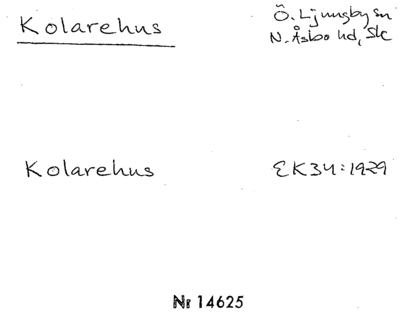 Kolarehus
Ö. Ljungby sn
N. Åsbo hd, Sk
Kolarehus
EK34:1929
Nr 14625